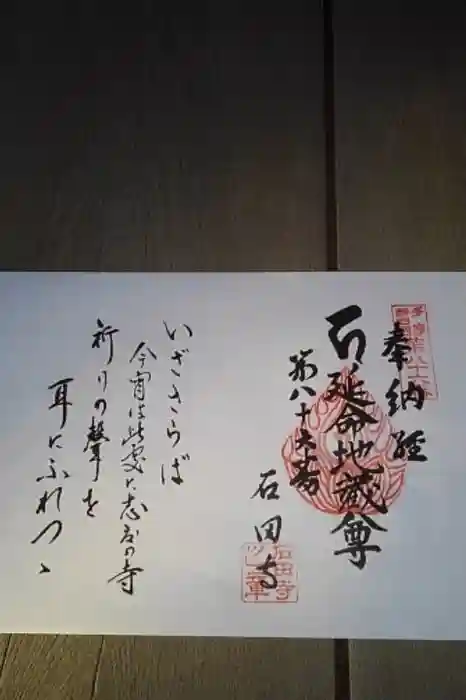 奉納経
延命地蔵尊
第八十六番
石田寺
石田寺
いざさらば
今宵は此処に志度の寺
祈りの聲を
耳にふれつゝ